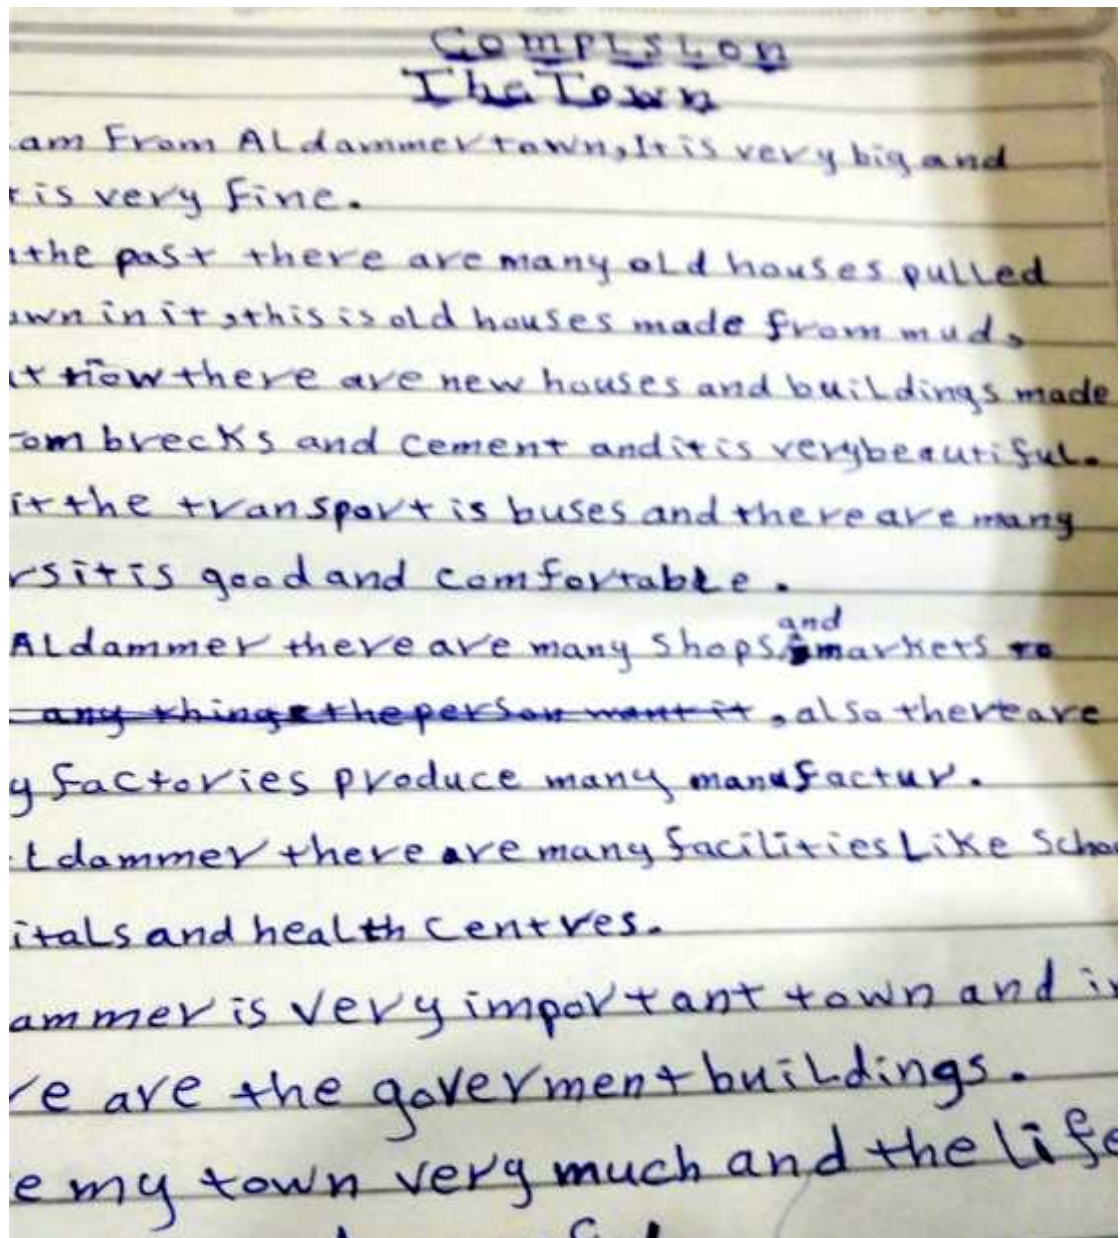 Compision
The Town
am From ALdammer town, It is very big and
is very fine.
the past there are many old houses pulled
wn in it, this is old houses made from mud,
t now there are new houses and buildings made
om brecks and cement and it is very beautiful.
it the transport is buses and there are many
rs it is good and comfortable.
ALdammer there are many shops and markets to
any things the person want it, also there are
y factories produce many manufactur.
ldammer there are many facilities Like Schoo
itals and health Centres.
ammer is very important town and in
re are the goverment buildings.
e my town very much and the life